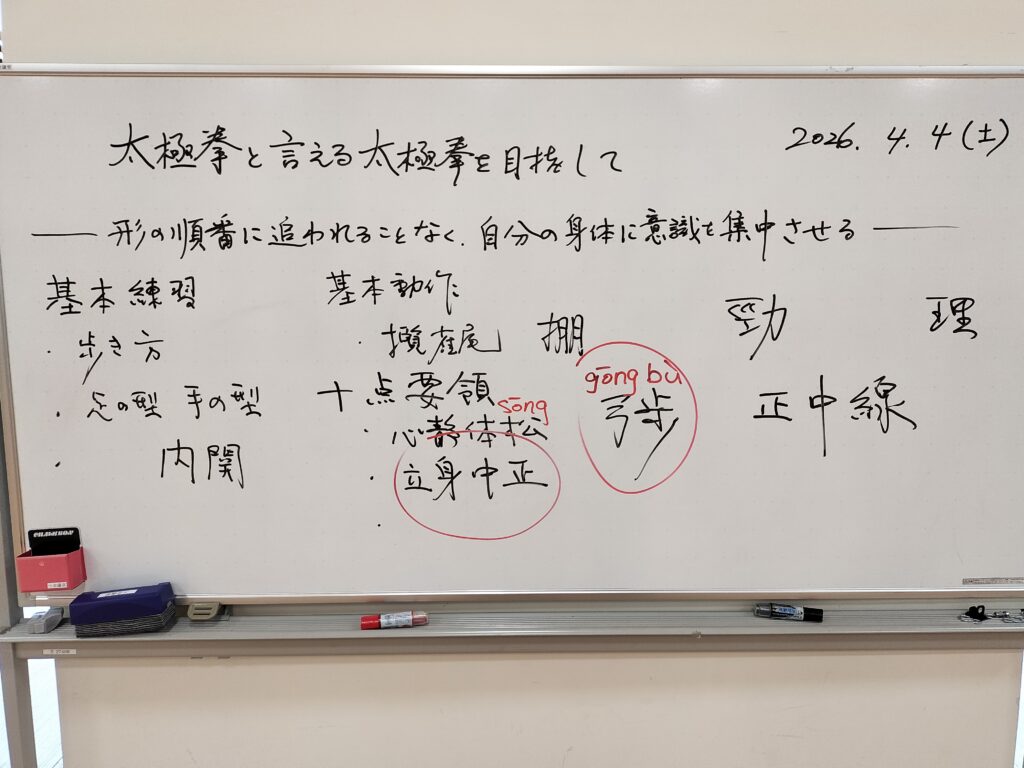 太極拳と言える太極拳を目指して
2026.4.4(土)
── 形の順番に追われることなく、自分の身体に意識を集中させる ──
基本練習
・歩き方
・足の型 手の型
・内関
基本動作
・攬雀尾 掤 勁 理
十点要領
・心静体松 sōng
・立身中正
・
gōng bù
弓歩
正中線